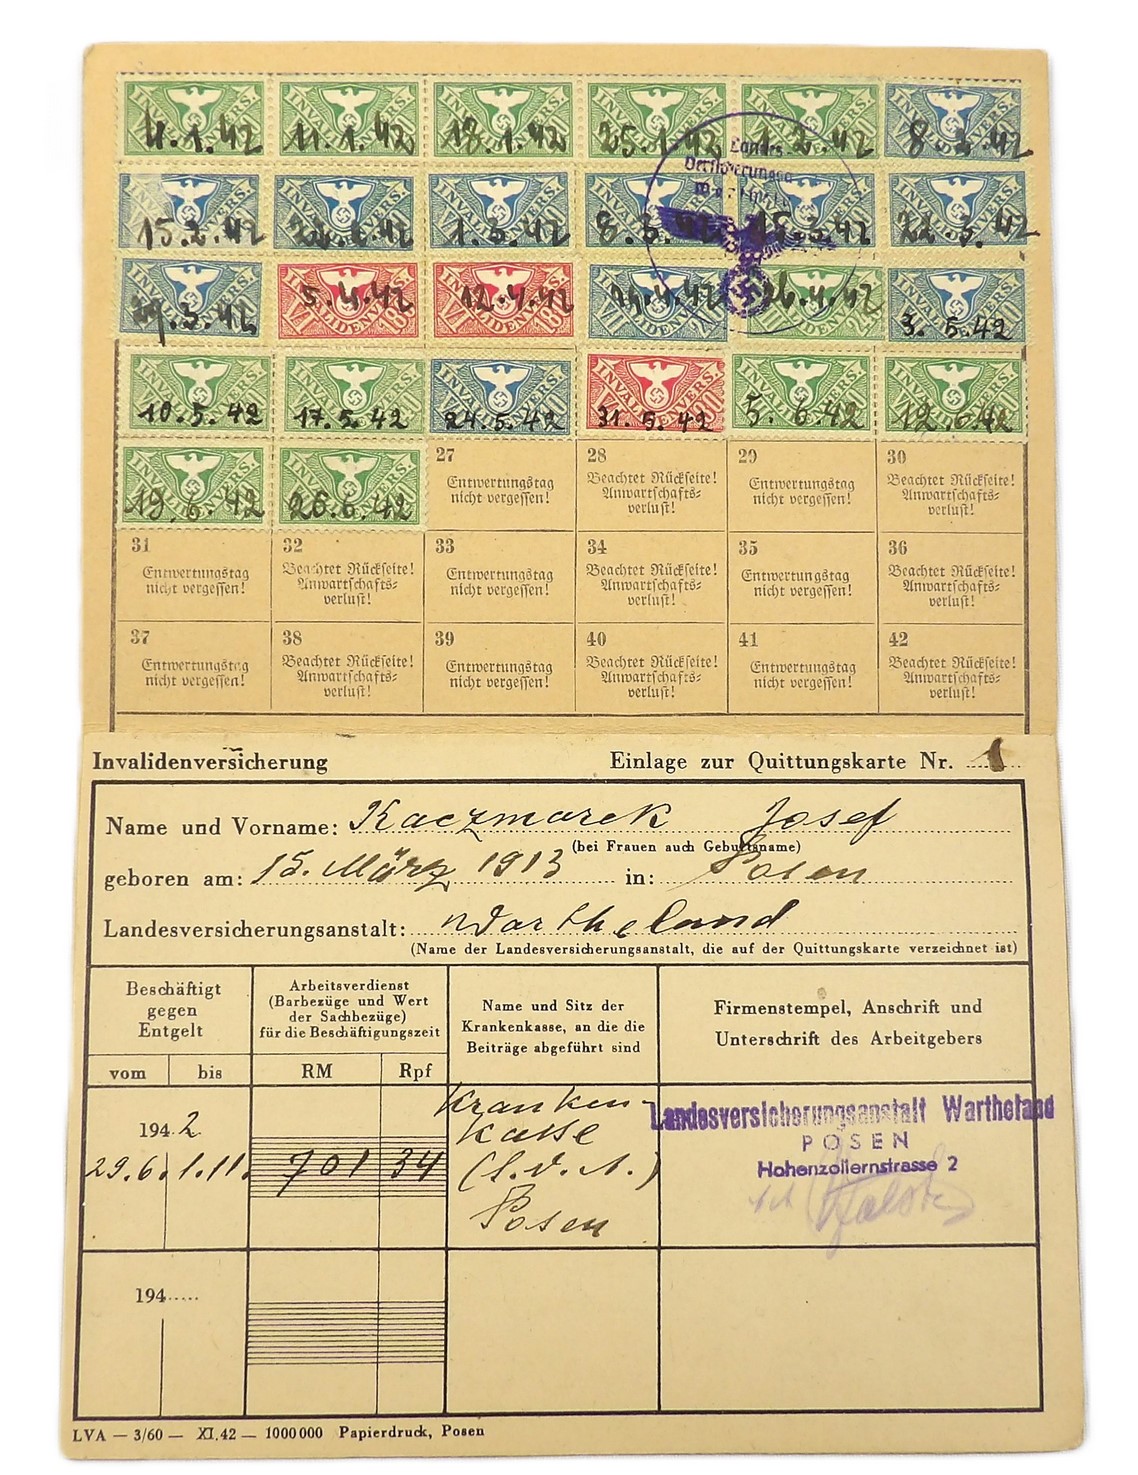 INVALIDENVERS. INVALIDENVERS. INVALIDENVERS. INVALIDENVERS. INVALIDENVERS. INVALIDENVERS.
4.1.42 11.1.42 18.1.42 25.1.42 1.2.42 8.2.42
Landes-
INVALIDENVERS. INVALIDENVERS. INVALIDENVERS. INVALIDENVERS. INVALIDENVERS. INVALIDENVERS.
15.2.42 1.3.42 8.3.42 15.3.42 22.3.42
INVALIDENVERS. INVALIDENVERS. INVALIDENVERS. INVALIDENVERS. INVALIDENVERS. INVALIDENVERS.
29.3.42 5.4.42 12.4.42 26.4.42 3.5.42
INVALIDENVERS. INVALIDENVERS. INVALIDENVERS. INVALIDENVERS. INVALIDENVERS. INVALIDENVERS.
10.5.42 17.5.42 24.5.42 31.5.42 5.6.42 12.6.42
INVALIDENVERS. INVALIDENVERS.
19.6.42 26.6.42
27 28 29 30
Entwertungstag Beachtet Rückseite! Entwertungstag Beachtet Rückseite!
nicht vergessen! Anwartschafts= nicht vergessen! Anwartschafts=
verlust! verlust!
31 32 33 34 35 36
Entwertungstag Beachtet Rückseite! Entwertungstag Beachtet Rückseite! Entwertungstag Beachtet Rückseite!
nicht vergessen! Anwartschafts= nicht vergessen! Anwartschafts= nicht vergessen! Anwartschafts=
verlust! verlust! verlust!
37 38 39 40 41 42
Entwertungstag Beachtet Rückseite! Entwertungstag Beachtet Rückseite! Entwertungstag Beachtet Rückseite!
nicht vergessen! Anwartschafts= nicht vergessen! Anwartschafts= nicht vergessen! Anwartschafts=
verlust! verlust! verlust!
Invalidenversicherung Einlage zur Quittungskarte Nr. 1
Name und Vorname: Kaczmarek Josef
(bei Frauen auch Geburtsname)
geboren am: 15. März 1913 in: Posen
Landesversicherungsanstalt: Wartheland
(Name der Landesversicherungsanstalt, die auf der Quittungskarte verzeichnet ist)
Beschäftigt
gegen
Entgelt
vom bis
Arbeitsverdienst
(Barbezüge und Wert
der Sachbezüge)
für die Beschäftigungszeit
RM Rpf
Name und Sitz der
Krankenkasse, an die die
Beiträge abgeführt sind
Firmenstempel, Anschrift und
Unterschrift des Arbeitgebers
1942
29.6. 1.11. 701 34
Kranken-
kasse
(L.V.A.)
Posen
Landesversicherungsanstalt Wartheland
POSEN
Hohenzollernstrasse 2
194.....
LVA — 3/60 — XI.42 — 1000000 Papierdruck, Posen